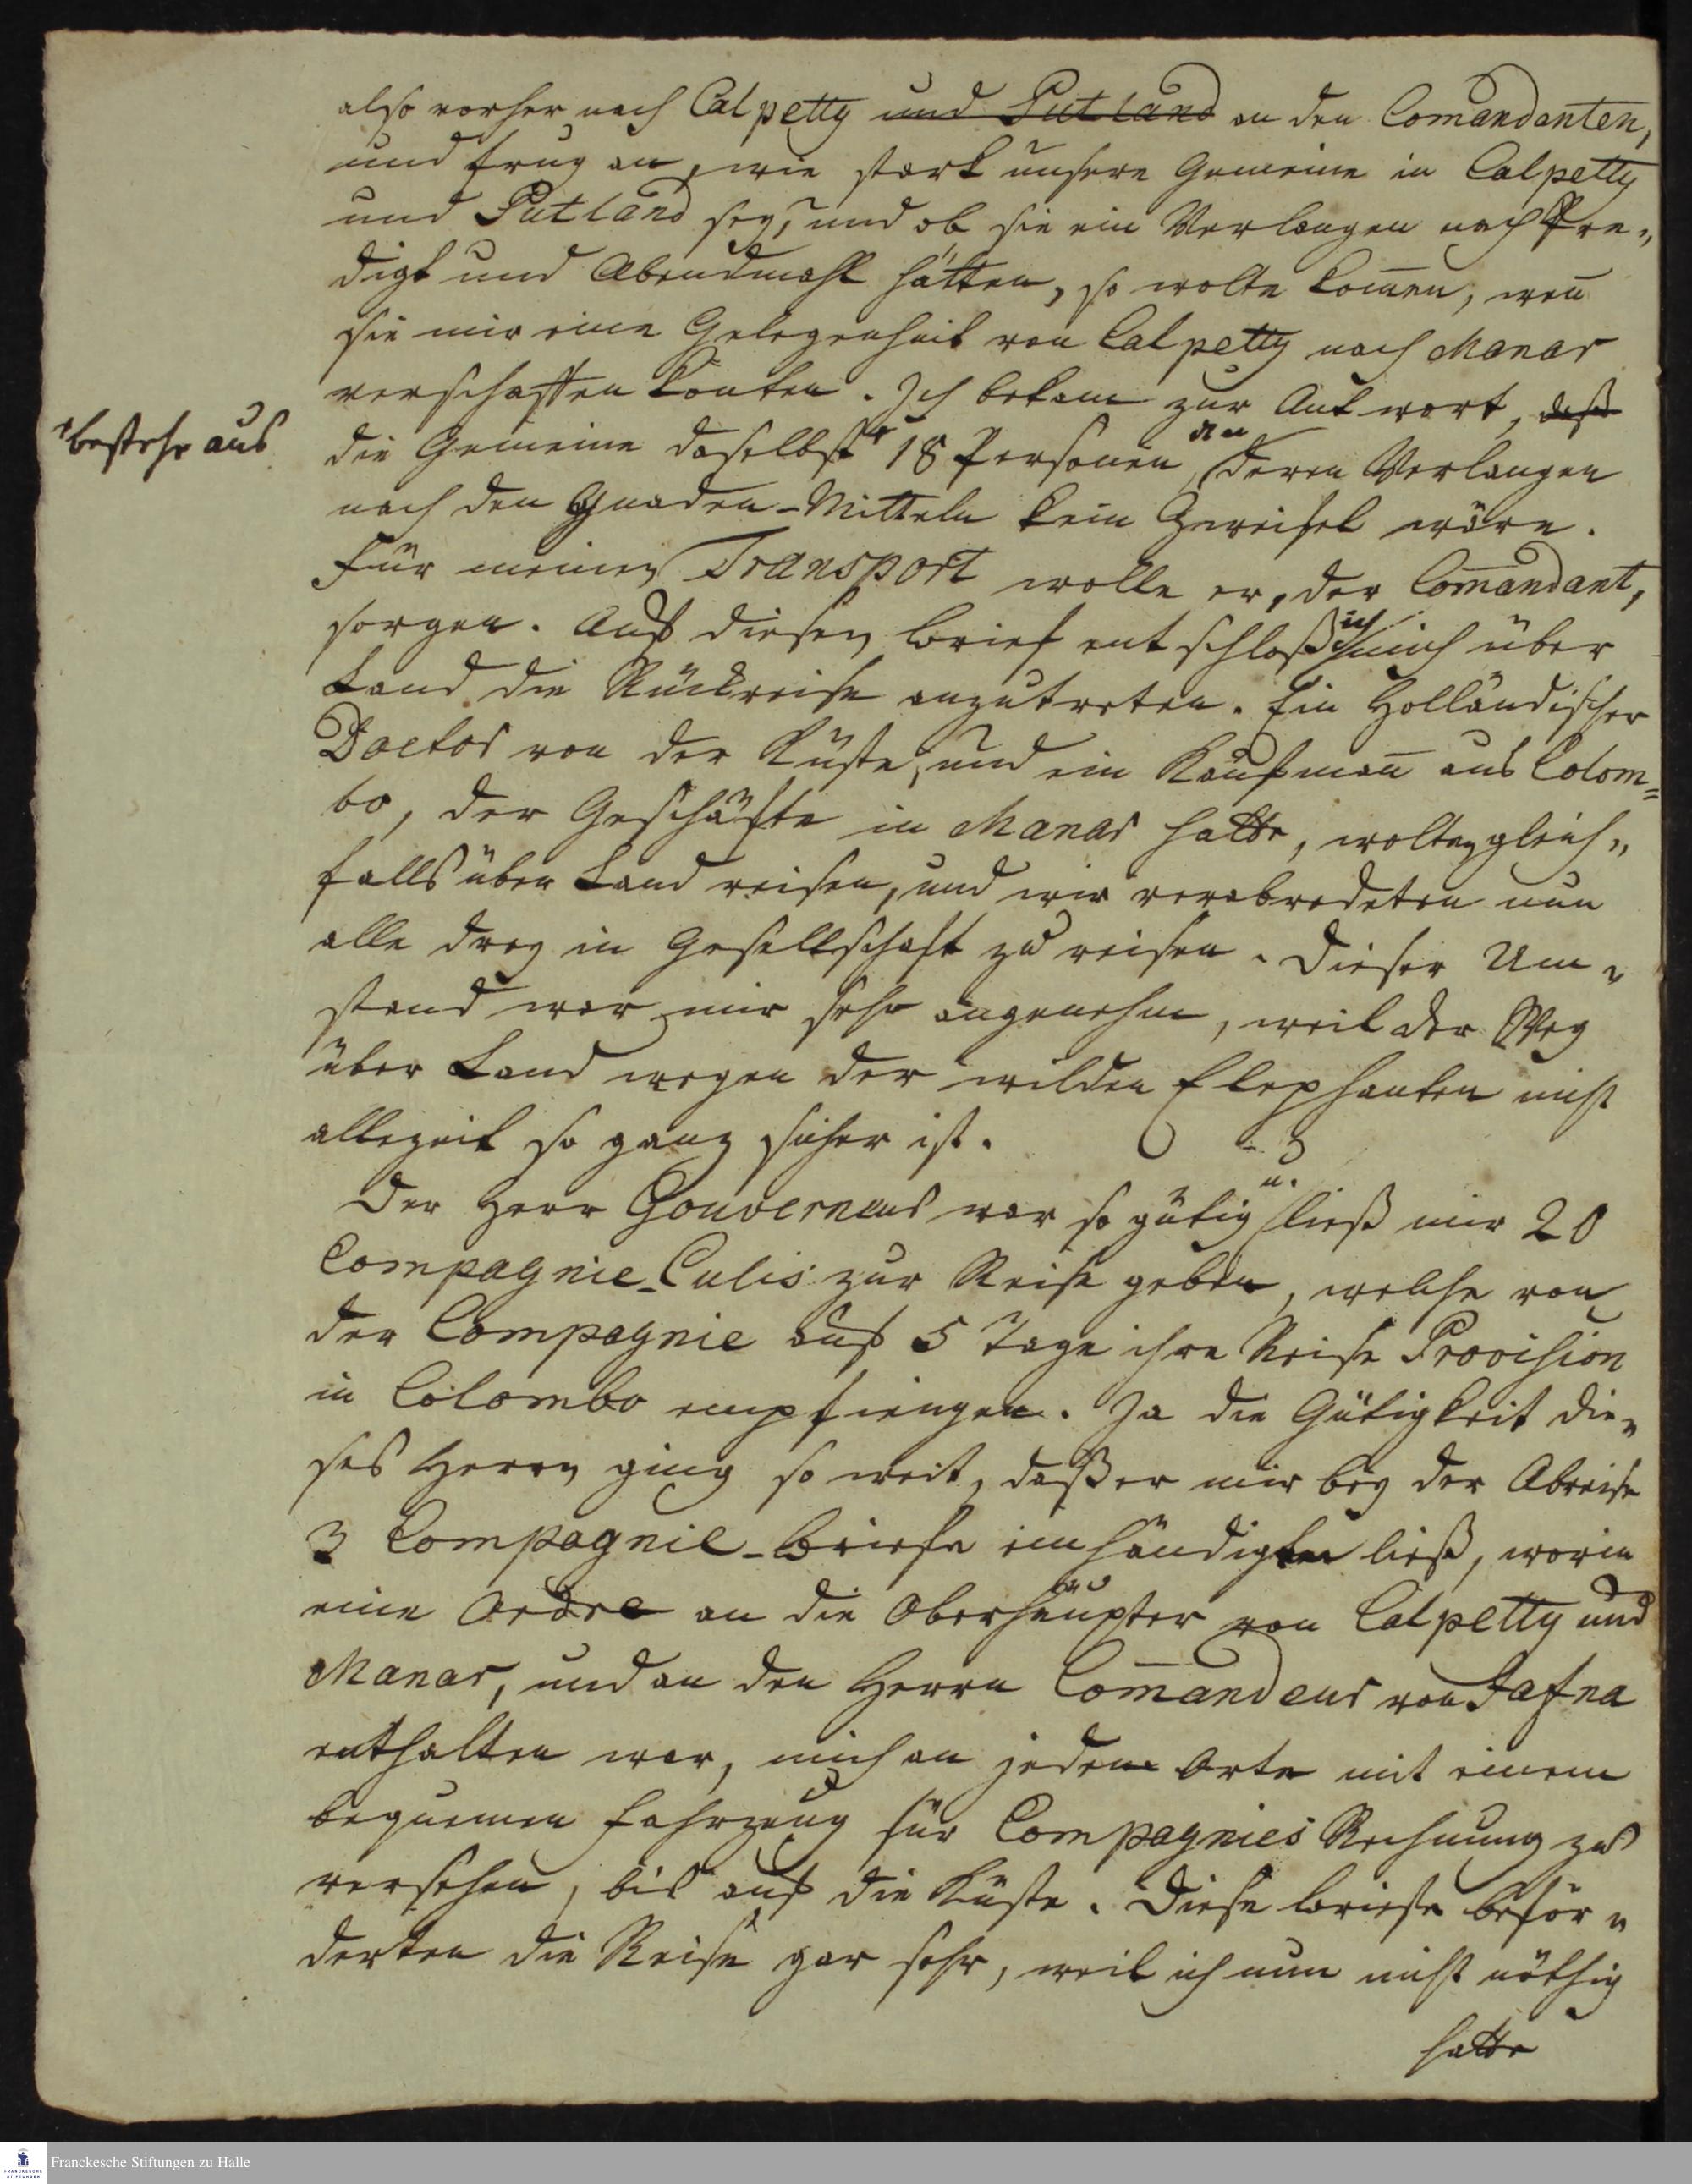 also vorher nach Calpetty und Putland an den Com̄andanten,
und frug an, wie stark unsere Gemeine in Calpetty
und Putland sey, und ob sie ein Verlangen nach Pre„
digt und Abendmahl hätten, so wolte kom̄en, wen̄
sie mir eine Gelegenheit von Calpetty nach Manar
verschaffen konten. Ich bekam zur Antwort, daß
bestehe aus
die Gemeine daselbst 18 Personen, deren Verlangen
nach den Gnaden-Mitteln kein Zweifel wäre.
Für meinen Transport wolle er, der Com̄andant,
sorgen. Auf diesen Brief entschloß ich mich über
Land die Rückreise anzutreten. Ein Holländischer
Doctor von der Küste, und ein Kaufman̄ aus Colom=
bo, der Geschäfte in Manar hatte, wolten gleich„
falls über Land reisen, und wir verabredeten nun
alle drey in Gesellschaft zu reisen. Dieser Um„
stand war mir sehr angenehm, weil der Weg
über Land wegen der wilden Elephanten nicht
allezeit so ganz sicher ist.
Der Herr Gouverneur war so gütig u. ließ mir 20
Compagnie-Culis zur Reise geben, welche von
der Compagnie auf 5 Tage ihre Reise Provision
in Colombo empfiengen. Ja die Gütigkeit die„
ses Herrn ging so weit, daß er mir bey der Abreise
3 Compagnie-Briefe einhändigen ließ, worin
eine Ordre an die Oberhäupter von Calpetty und
Manar, und an den Herrn Com̄andeur von Jafna
enthalten war, mich an jedem Orte mit einem
bequemen Fahrzeug für Compagnies Rechnung zu
versehen, bis auf die Küste. Diese Briefe beför„
derten die Reise gar sehr, weil ich nun nicht nöthig
hatte
Franckesche Stiftungen zu Halle